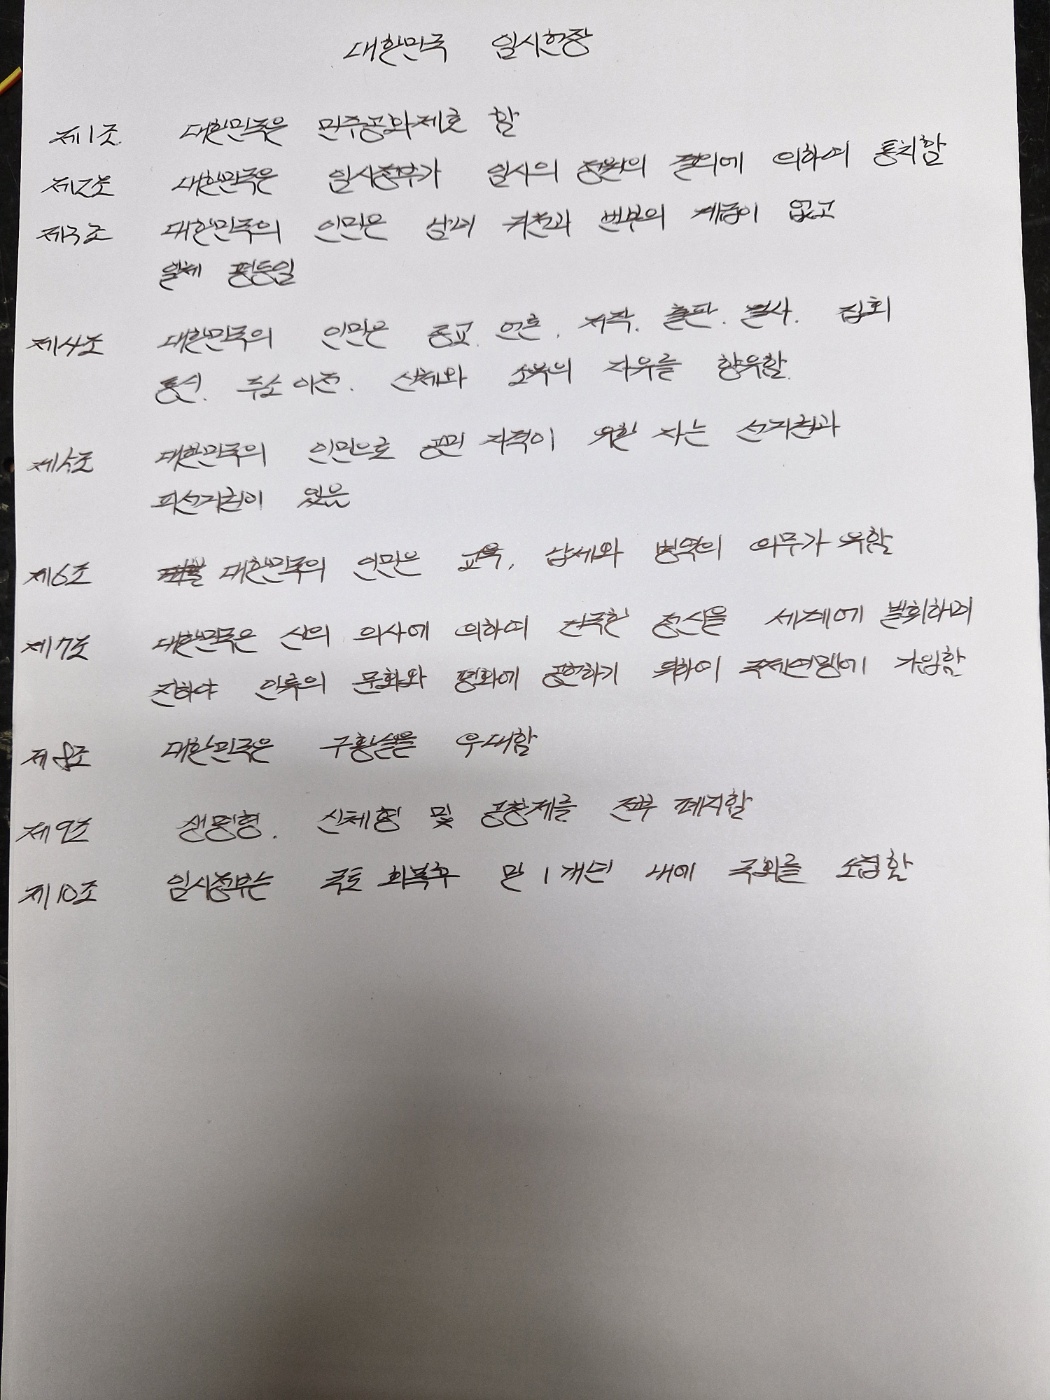 대한민국 임시헌장
제1조. 대한민국은 민주공화제로 함
제2조 대한민국은 임시정부가 임시의 정원의 결의에 의하여 통치함
제3조 대한민국의 인민은 남녀 귀천과 빈부의 계급이 없고
일체 평등임
제4조 대한민국의 인민은 종교. 언론. 저작. 출판. 결사. 집회
통신. 주소 이전. 신체와 소유의 자유를 향유함.
제5조 대한민국의 인민으로 공민 자격이 유한 자는 선거권과
피선거권이 있음
제6조 대한민국의 인민은 교육, 납세와 병역의 의무가 유함
제7조 대한민국은 신의 의사에 의하여 건국한 정신을 세계에 발휘하며
진하야 인류의 문화와 평화에 공헌하기 위하여 국제연맹에 가입함
제8조 대한민국은 구황실을 우대함
제9조 생명형. 신체형 및 공창제를 전부 폐지함
제10조 임시정부는 국토 회복후 만 1개년 내에 국회를 소집함